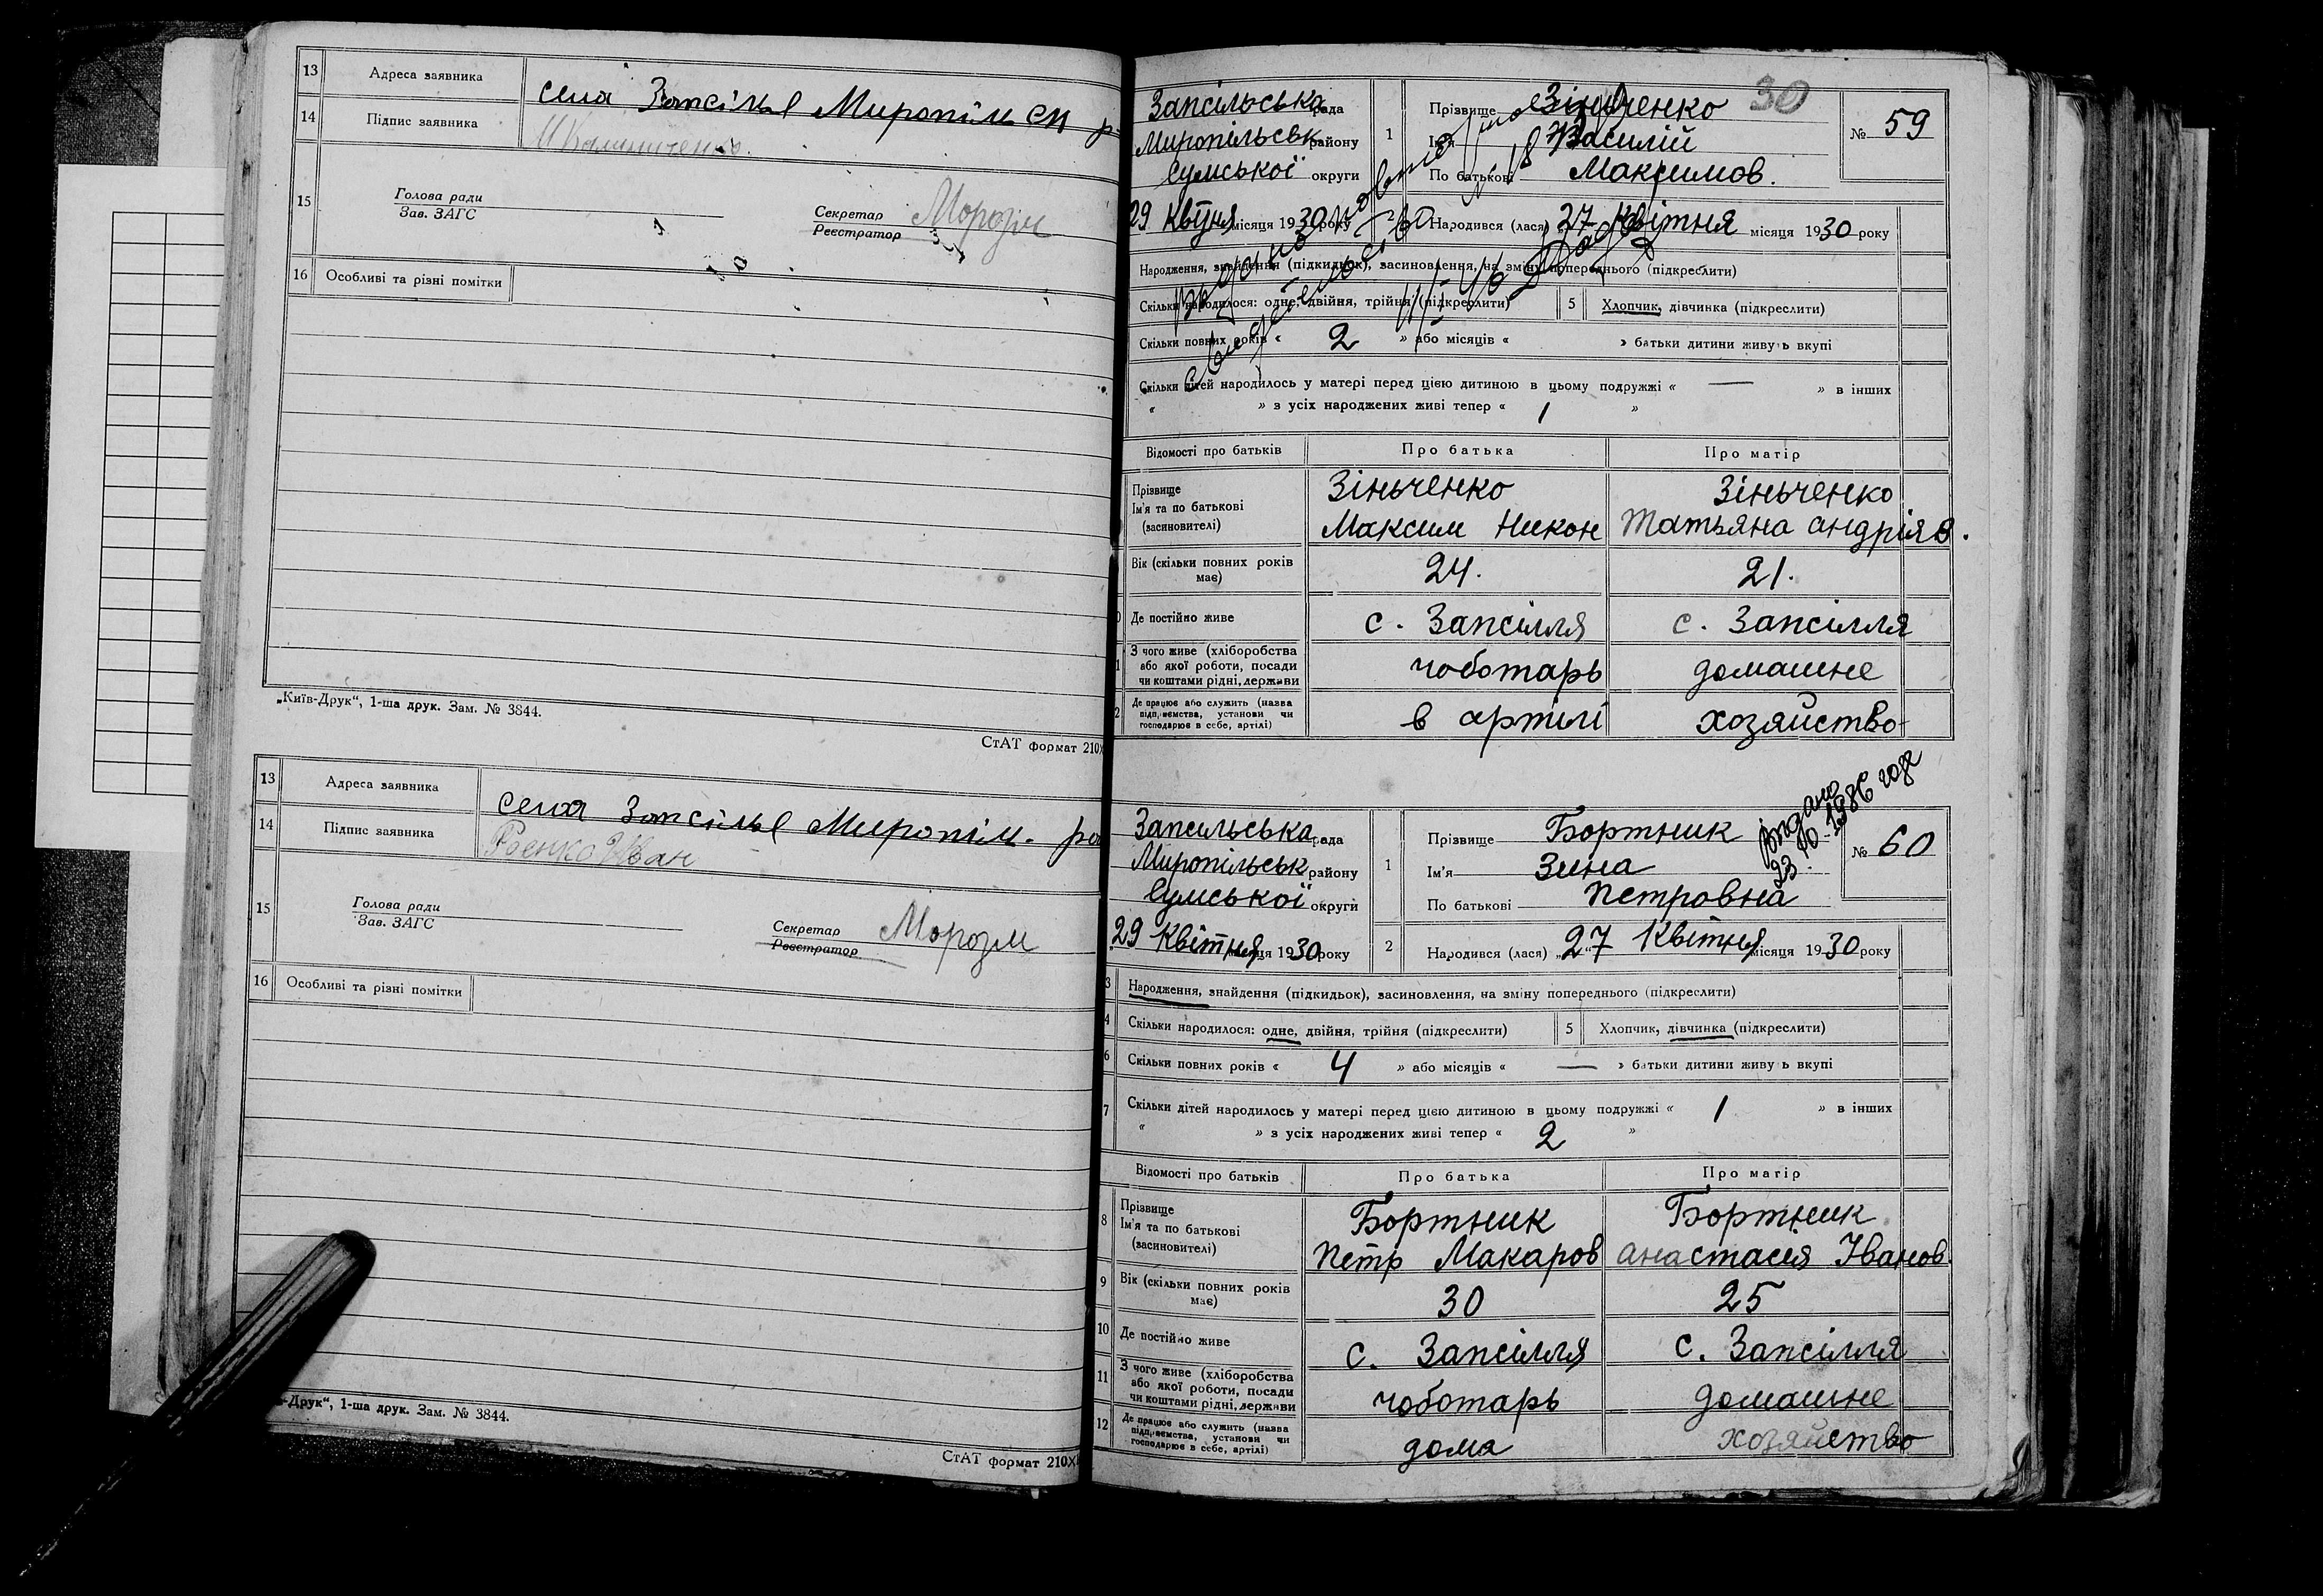 13 Адреса заявника села Запсілье Миропіль
14 Підпис заявника
15 Голова ради
Зав. ЗАГС
Секретар
Реєстратор
16 Особливі та різні помітки
„Київ-Друк“, 1-ша друк. Зам. № 3844.
СтАТ формат 210X
13 Адреса заявника села Запсілье Миропіл.
14 Підпис заявника Роенко Иван
15 Голова ради
Зав. ЗАГС
Секретар
Реєстратор
16 Особливі та різні помітки
-Друк“, 1-ша друк. Зам. № 3844.
СтАТ формат 210X
30
Запсільська рада
Миропільськ району
Сумської округи
29 квітня місяця 1930 року
1 Прізвище Зіньченко
Ім'я Василій
По батькові Максимов.
№ 59
2 Народився (лася) 27 квітня місяця 1930 року
Народження, знайдення (підкидьок), засиновлення, на зміну попереднього (підкреслити)
Скільки народилося: одне, двійня, трійня (підкреслити) 5 Хлопчик, дівчинка (підкреслити)
Скільки повних років « 2 » або місяців « » батьки дитини живуть вкупі
Скільки дітей народилось у матері перед цією дитиною в цьому подружжі « — » в інших
« » з усіх народжених живі тепер « 1 »
Відомості про батьків Про батька Про матір
Прізвище
Ім'я та по батькові
(засиновителі)
Зіньченко
Максим Никон
Зіньченко
Татьяна андріяв.
Вік (скільки повних років має) 24. 21.
Де постійно живе с. Запсілля с. Запсілля
З чого живе (хліборобства
або якої роботи, посади
чи коштами рідні, держави
чоботарь домашне
Де працює або служить (назва
підприємства, установи чи
господарює в себе, артілі)
в артілі хозяйство
Запсильська рада
Миропільськ району
Сумської округи
29 квітня місяця 1930 року
1 Прізвище Бортник
Ім'я Зина
По батькові Петровна
Видано
23. 10-1986 годе
№ 60
2 Народився (лася) „27“ квітня місяця 1930 року
3 Народження, знайдення (підкидьок), засиновлення, на зміну попереднього (підкреслити)
4 Скільки народилося: одне, двійня, трійня (підкреслити) 5 Хлопчик, дівчинка (підкреслити)
6 Скільки повних років « 4 » або місяців « — » батьки дитини живуть вкупі
7 Скільки дітей народилось у матері перед цією дитиною в цьому подружжі « 1 » в інших
« » з усіх народжених живі тепер « 2 »
Відомості про батьків Про батька Про матір
8 Прізвище
Ім'я та по батькові
(засиновителі)
Бортник
Петр Макаров
Бортник
анастасія Іванов.
9 Вік (скільки повних років має) 30 25
10 Де постійно живе с. Запсілля с. Запсілля
11 З чого живе (хліборобства
або якої роботи, посади
чи коштами рідні, держави
чоботарь домашне
12 Де працює або служить (назва
підприємства, установи чи
господарює в себе, артілі)
дома хозяйство